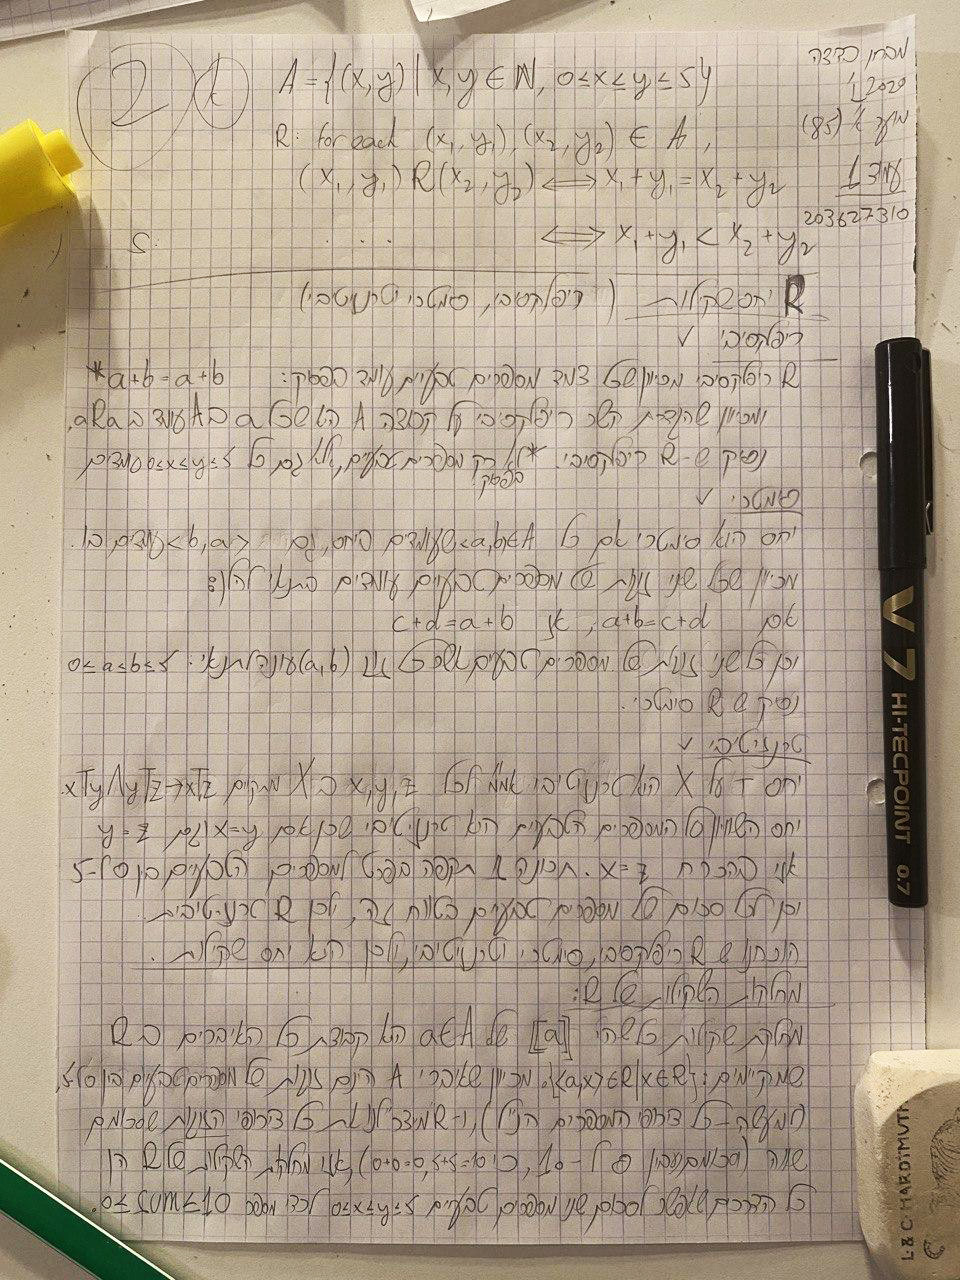 2 א
A = {(x,y) | x,y ∈ N, 0≤x≤y≤5}
מבחן
2020
מועד א (85)
עמוד 1
203627310
R: for each (x₁,y₁),(x₂,y₂) ∈ A,
(x₁,y₁)R(x₂,y₂) ⟺ x₁+y₁=x₂+y₂
S: .... ⟺ x₁+y₁<x₂+y₂
R יחס שקילות (רפלקסיבי, סמטרי וטרנזיטיבי)
ריפלקסיבי ✓
R ריפלקסיבי מכיוון שכל צמד מספרים טבעיים עומד בפסוק: a+b=a+b*
ומכיוון שהגדרת רפלקסיבי על קבוצה A הוא שכל a ב A עומד ב aRa,
נסיק ש-R ריפלקסיבי. *לא רק מספרים טבעיים, אלא גם כל 0≤x≤y≤5 עומדים
בפסוק
סמטרי ✓
יחס הוא סימטרי אם כל <a,b>∈A שעומדים ביחס, גם <b,a> עומדים בו.
מכיוון שכל שני זוגות של מספרים טבעיים עומדים בתנאי להלן:
אם a+b=c+d, אז c+d=a+b
וכן כל שני זוגות של מספרים טבעים אשר כל זוג (a,b) עונה לתנאי 0≤a≤b≤5.
נסיק ש R סימטרי.
טרנזיטיבי ✓
יחס T על X הוא טרנזיטיבי אמ"מ לכל x,y,z ב X מתקיים xTy∧yTz→xTz.
יחס השוויון על המספרים הטבעים הוא טרנזיטיבי שכן אם x=y וגם y=z
אזי בהכרח x=z. תכונה זו תקפה בפרט למספרים הטבעיים בין 0 ל-5
וכן לכל סכום של מספרים טבעיים בטווח זה, ולכן R טרנזיטיבית.
הוכחנו ש R ריפלקסיבי, סימטרי וטרנזיטיבי, ולכן הוא יחס שקילות.
מחלקות השקילות של R:
מחלקת שקילות כלשהי [a] של a∈A הוא קבוצת כל האיברים ב R
שמקיימים: {<a,x>∈R|x∈R}. מכיוון שאיברי A הינם זוגות של מספרים טבעים בין 0 ל5,
(למעשה - כל צירופי המספרים הנ"ל), ו-R מגדיר לנו את כל צירופי הזוגות שסכומם
שווה (וסכומם נע בין 0 ל-10, כי 0+0=0, 5+5=10) אזי מחלקות השקילות של R הן
כל הדרכים שאפשר לסכום שני מספרים טבעיים 0≤x≤y≤5 לכדי מספר 0≤sum≤10.
V7 HI-TECPOINT 0.7
L&C HARDTMUTH